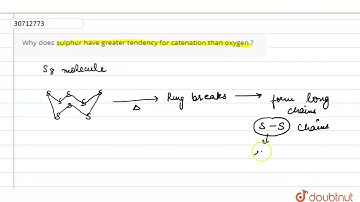 30712773
Why does sulphur have greater tendency for catenation than oxygen ?
S8 molecule
S S S S S S S S
Δ
Ring breaks
form long
chains
S - S chains
doubtnut